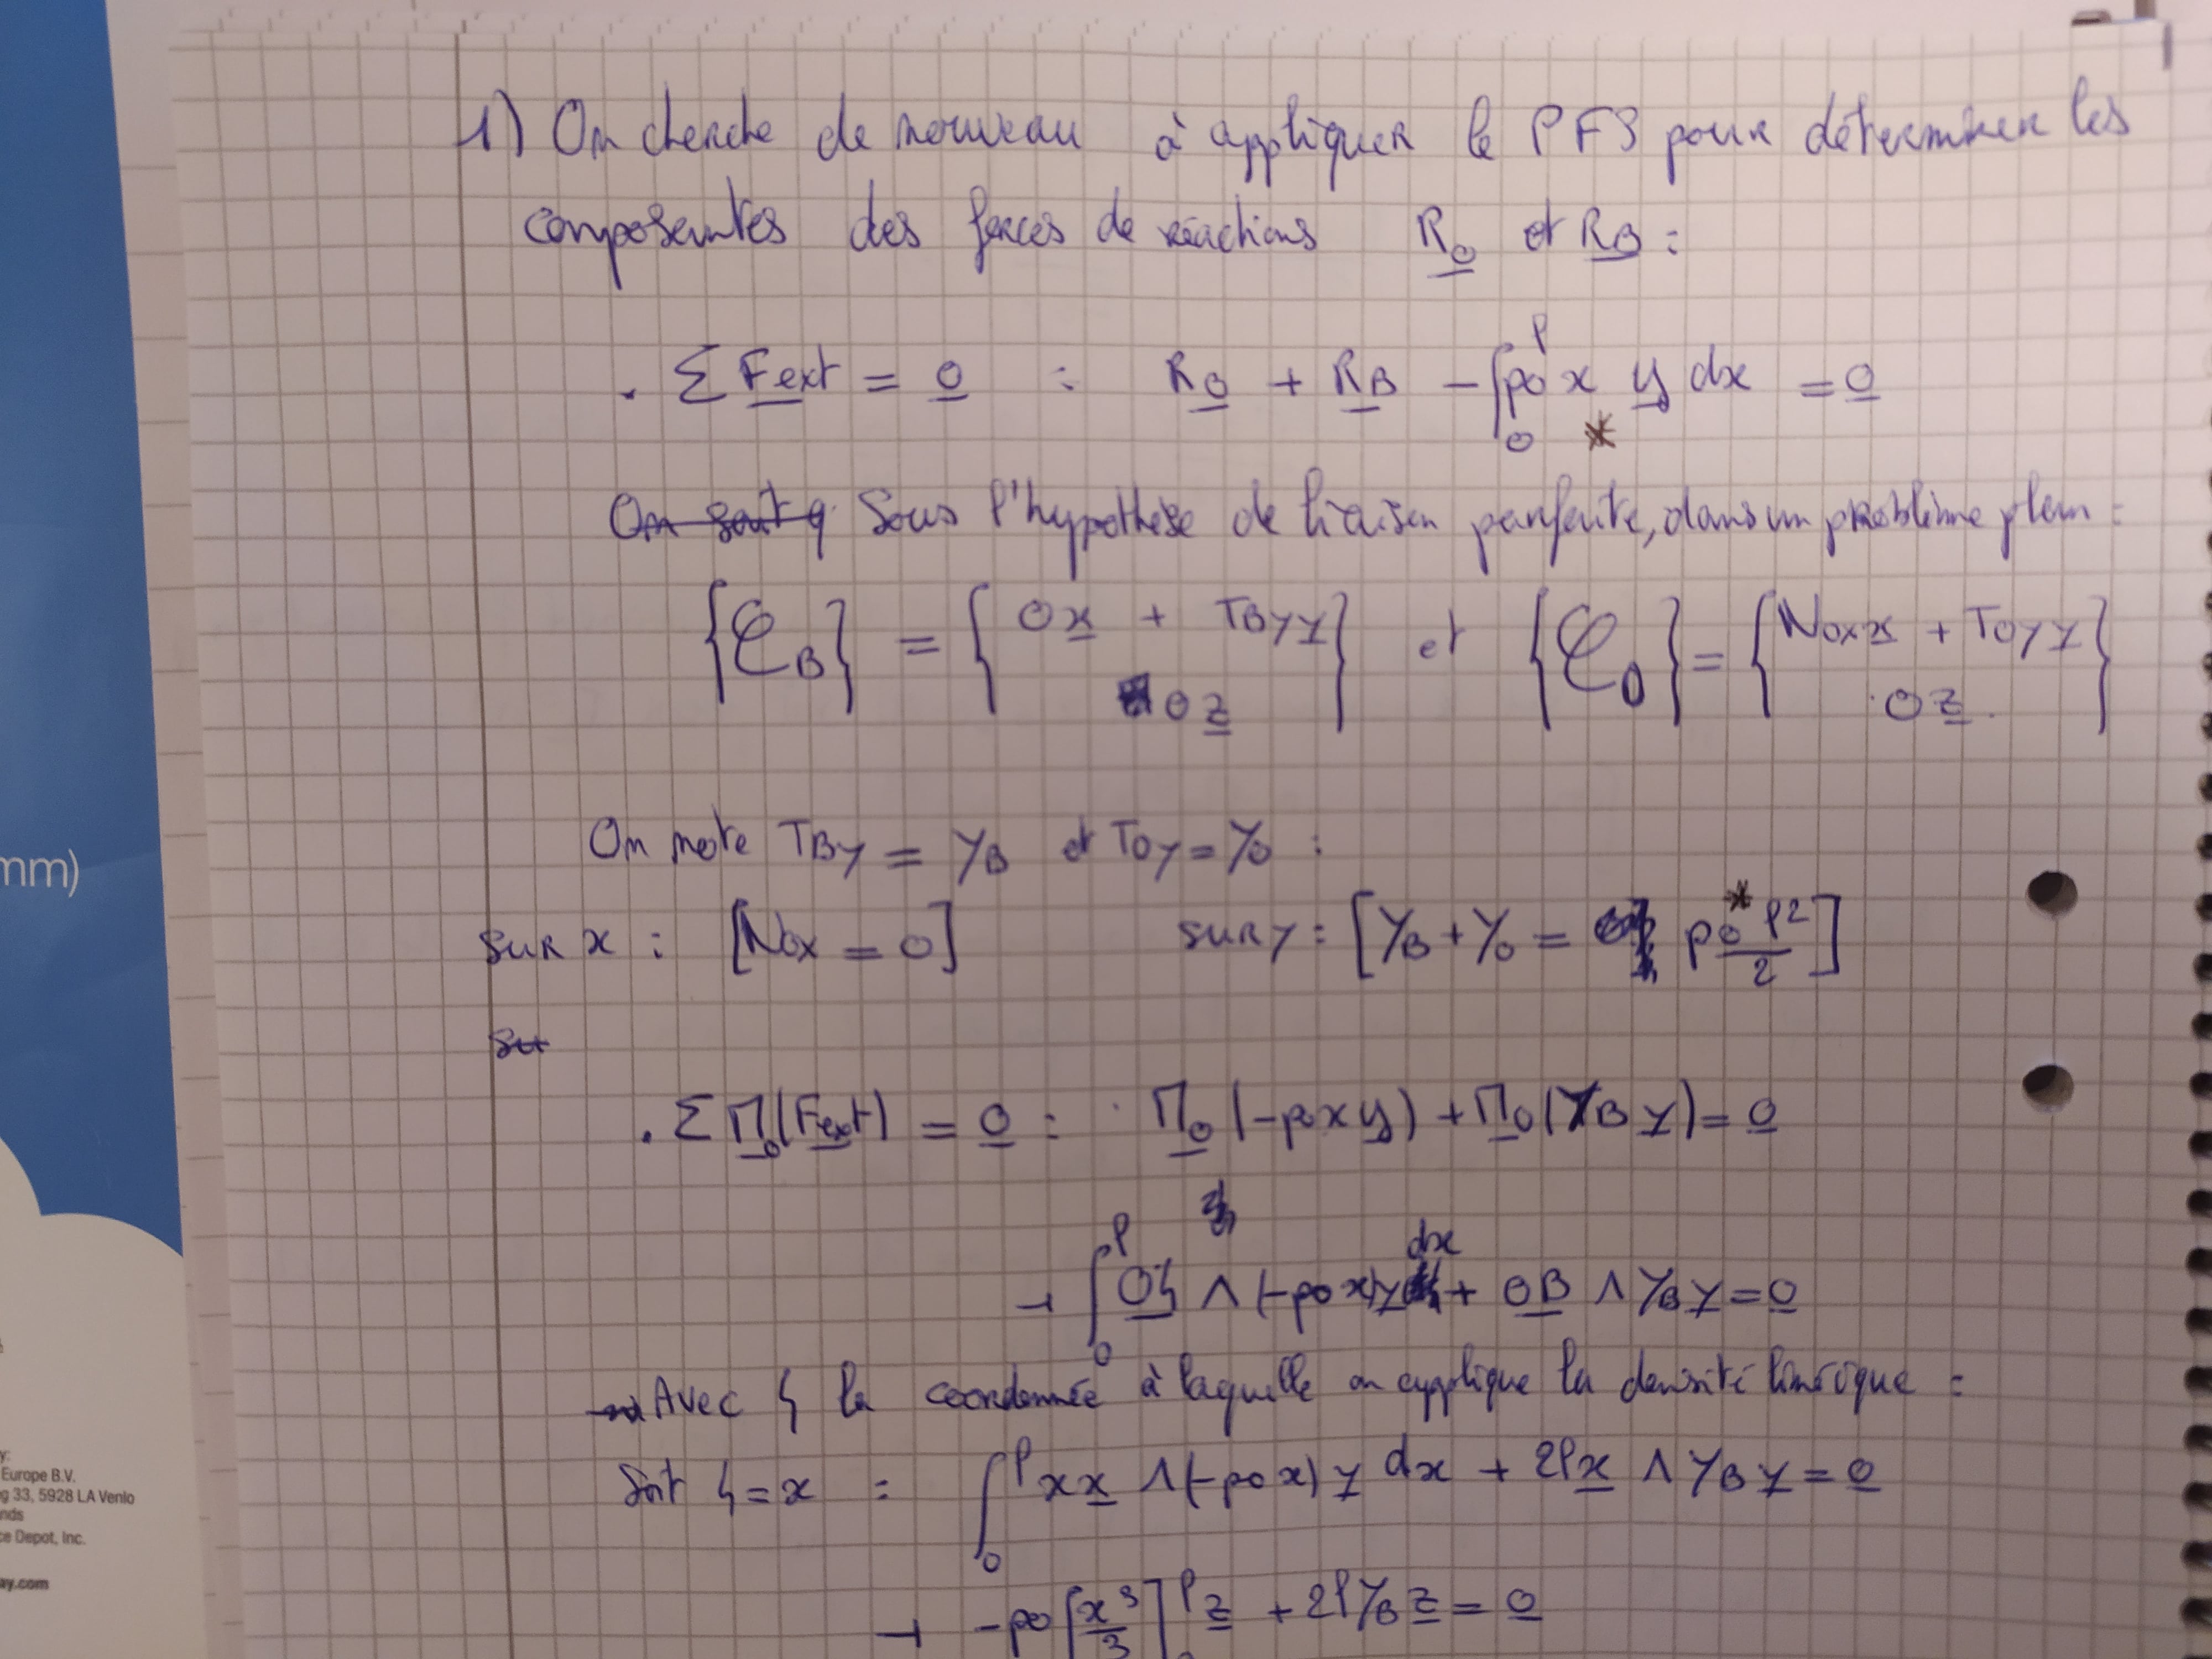 1) On cherche de nouveau à appliquer le PFS pour déterminer les
composantes des forces de réactions R₀ et R_B :
. Σ Fext = 0 : R₀ + R_B - ∫₀^l p₀ x y dx = 0
*
On sait q Sous l'hypothèse de liaison parfaite, dans un problème plan :
{𝒯_B} = { 0x + T_By y / 0 z } et {𝒯_0} = { N_0x x + T_0y y / 0 z }
On note T_By = Y_B et T_0y = Y_0 :
sur x : [N_0x = 0] sur y : [Y_B + Y_0 = p₀* l²/2]
Su
. Σ M₀(Fext) = 0 : M₀(-p₀ x y) + M₀(Y_B y) = 0
→ ∫₀^l Oζ ∧ (-p₀ x) y dx + OB ∧ Y_B y = 0
→ Avec ζ la coordonnée à laquelle on applique la densité linéique :
Soit ζ = x : ∫₀^l x x ∧ (-p₀ x) y dx + 2l x ∧ Y_B y = 0
→ -p₀ [x³/3]₀^l z + 2l Y_B z = 0
mm)
y:
Europe B.V.
g 33, 5928 LA Venlo
nds
ce Depot, Inc.
ay.com